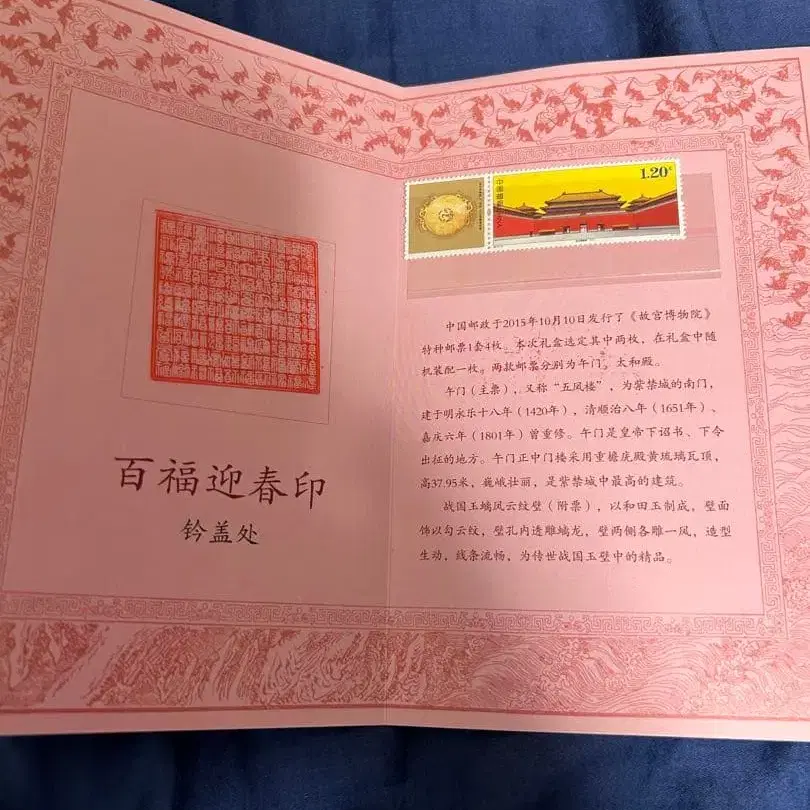 百福迎春印
钤盖处
1.20元
中国邮政
中国邮政于2015年10月10日发行了《故宫博物院》
特种邮票1套4枚。本次礼盒选定其中两枚，在礼盒中随
机装配一枚。两款邮票分别为午门，太和殿。
午门（主票），又称“五凤楼”，为紫禁城的南门，
建于明永乐十八年（1420年），清顺治八年（1651年）、
嘉庆六年（1801年）曾重修。午门是皇帝下诏书、下令
出征的地方。午门正中门楼采用重檐庑殿黄琉璃瓦顶，
高37.95米，巍峨壮丽，是紫禁城中最高的建筑。
战国玉螭凤云纹璧（附票），以和田玉制成，璧面
饰以勾云纹，璧孔内透雕螭龙，璧两侧各雕一凤，造型
生动，线条流畅，为传世战国玉璧中的精品。